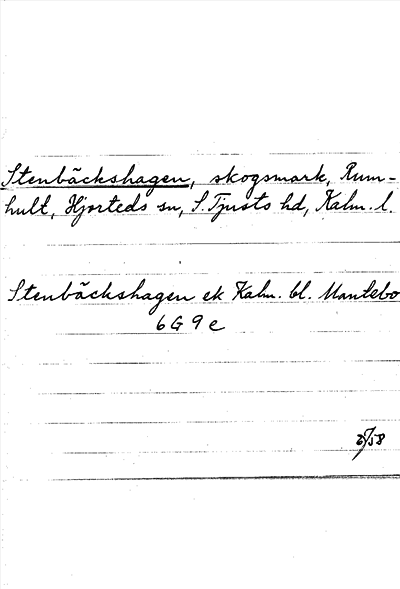 Stenbäckshagen, skogsmark, Rum-
hult, Hjorteds sn, S. Tjusts hd, Kalm. l.
Stenbäckshagen ek Kalm. bl. Mantebo
6 G 9 e